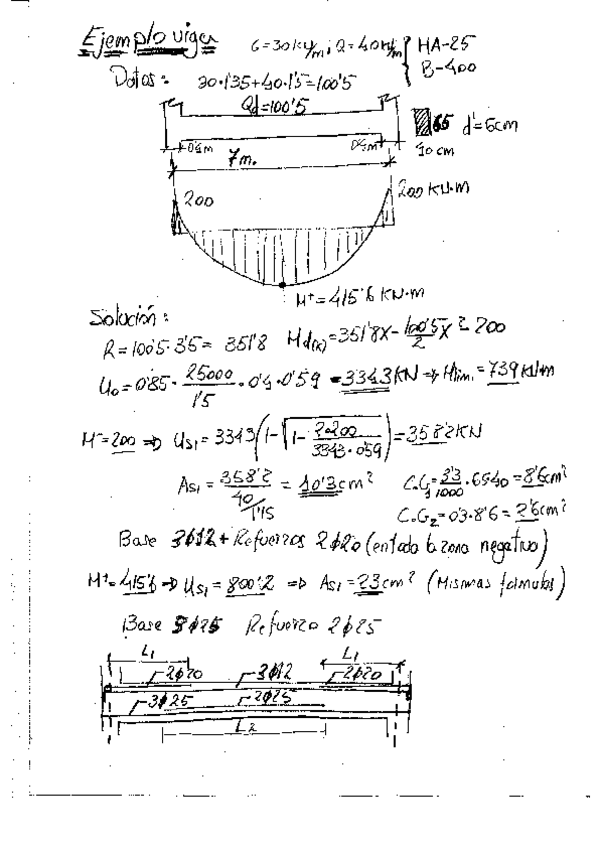 Ejemplo viga
G=30KN/m; Q=40KN/m
HA-25
B-400
Datos: 30·1'35+40·1'5=100'5
Qd=100'5
65 d'=6cm
0'4m 0'4m
7m.
200
200 KN·m
M⁺=415'6 KN·m
Solución:
R=100'5·3'5= 351'8 Md(x)=351'8x-100'5/2 x²-200
U₀=0'85·25000/1'5·0'4·0'59=3343KN⇒Mlim.=739KN·m
M⁻=200⇒Us₁=3343(1-√(1-2·200/3343·0'59))=358'2KN
As₁=358'2/(40/1'15)=10'3cm² C.G₁=3'3/1000·6540=8'6cm²
C.G₂=0'3·8'6=2'6cm²
Base 3ϕ12+Refuerzos 2ϕ20 (en toda la zona negativa)
M⁺=415'6⇒Us₁=800'2⇒As₁=23cm² (Mismas fórmulas)
Base 3ϕ25 Refuerzo 2ϕ25
L₁ L₁
2ϕ20 3ϕ12 2ϕ20
3ϕ25 2ϕ25
L2